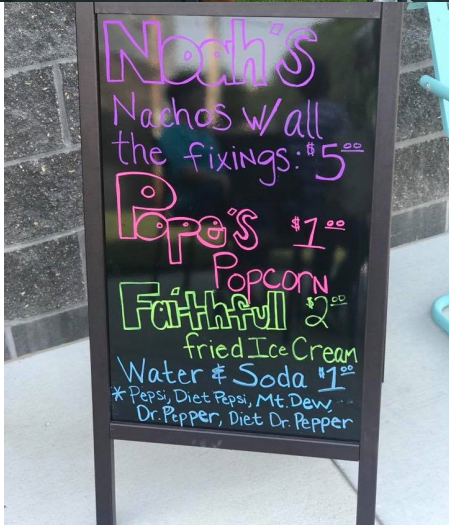 Noah's
Nachos w/ all
the fixings: $5⁰⁰
Pope's $1⁰⁰
Popcorn
Faithfull $2⁰⁰
fried Ice Cream
Water & Soda $1⁰⁰
* Pepsi, Diet Pepsi, Mt. Dew,
Dr. Pepper, Diet Dr. Pepper